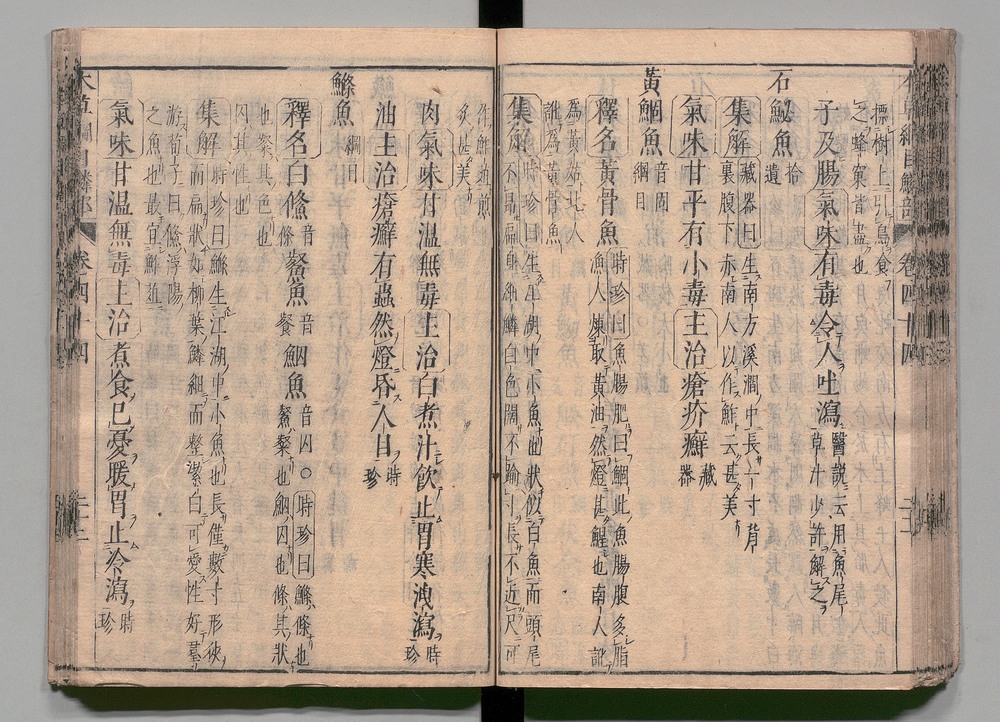 標樹上引鳥食
之蜂窠皆盡也
子及腸氣味有毒令人吐瀉醫説云用魚尾
草汁少許解之
石鮅魚拾
遺
集解藏器曰生南方溪澗中長一寸背
裏腹下赤南人以作鮓云甚美
氣味甘平有小毒主治瘡疥癬藏
器
黃鯝魚音固
綱目
釋名黃骨魚時珍曰魚腸肥曰鯝此魚腸腹多脂
漁人煉取黃油然燈甚鯹也南人訛
為黃姑北人
訛為黃骨魚
集解時珍曰生江湖中小魚也狀似白魚而頭尾
不昂扁身細鱗白色闊不踰寸長不近尺可
作鮓菹煎
炙甚美
肉氣味甘溫無毒主治白煮汁飲止胃寒洩瀉時
珍
油主治瘡癬有蟲然燈昏人目時
珍
鰷魚綱目
釋名白鰷音
條
鱟魚音
餐
鮂魚音囚○時珍曰鰷條也
鱟粲也鮂囚也條其狀
也粲其色也
囚其性也
集解時珍曰鰷生江湖中小魚也長僅數寸形狹
而扁狀如柳葉鱗細而整潔白可愛性好羣
游荀子曰鰷浮陽
之魚也最宜鮓菹
氣味甘溫無毒主治煮食已憂暖胃止冷瀉時
珍
卷四十四